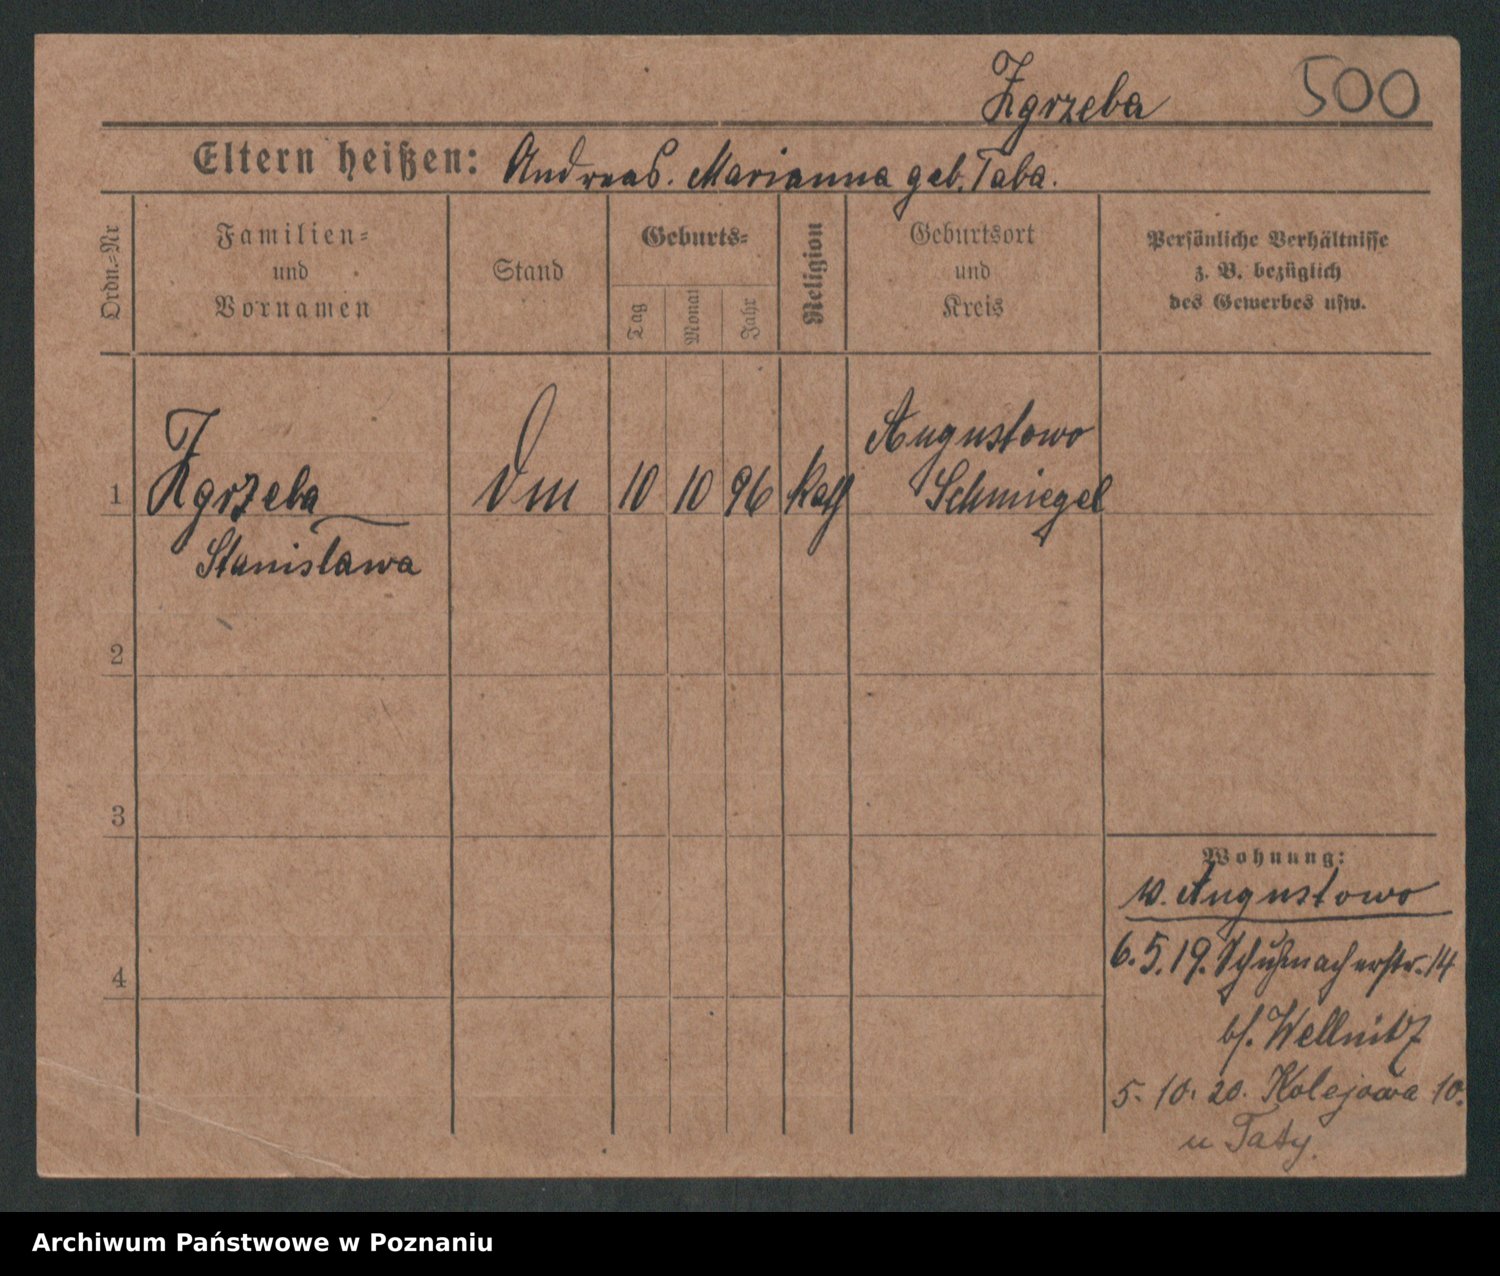 Zgrzeba 500
Eltern heißen: Andreas. Marianna geb. Taba.
Ordn.=Nr
Familien=
und
Vornamen
Stand
Geburts=
Tag
Monat
Jahr
Religion
Geburtsort
und
Kreis
Persönliche Verhältnisse
z. B. bezüglich
des Gewerbes usw.
1 Zgrzeba Dm 10 10 96 kath Augustowo
Schmiegel
Stanislawa
2
3
4
Wohnung:
v. Augustowo
6.5.19. Schuhmacherstr. 14
b/. Wellnitz
5. 10. 20. Kolejowa 10.
u Taty.
Archiwum Państwowe w Poznaniu